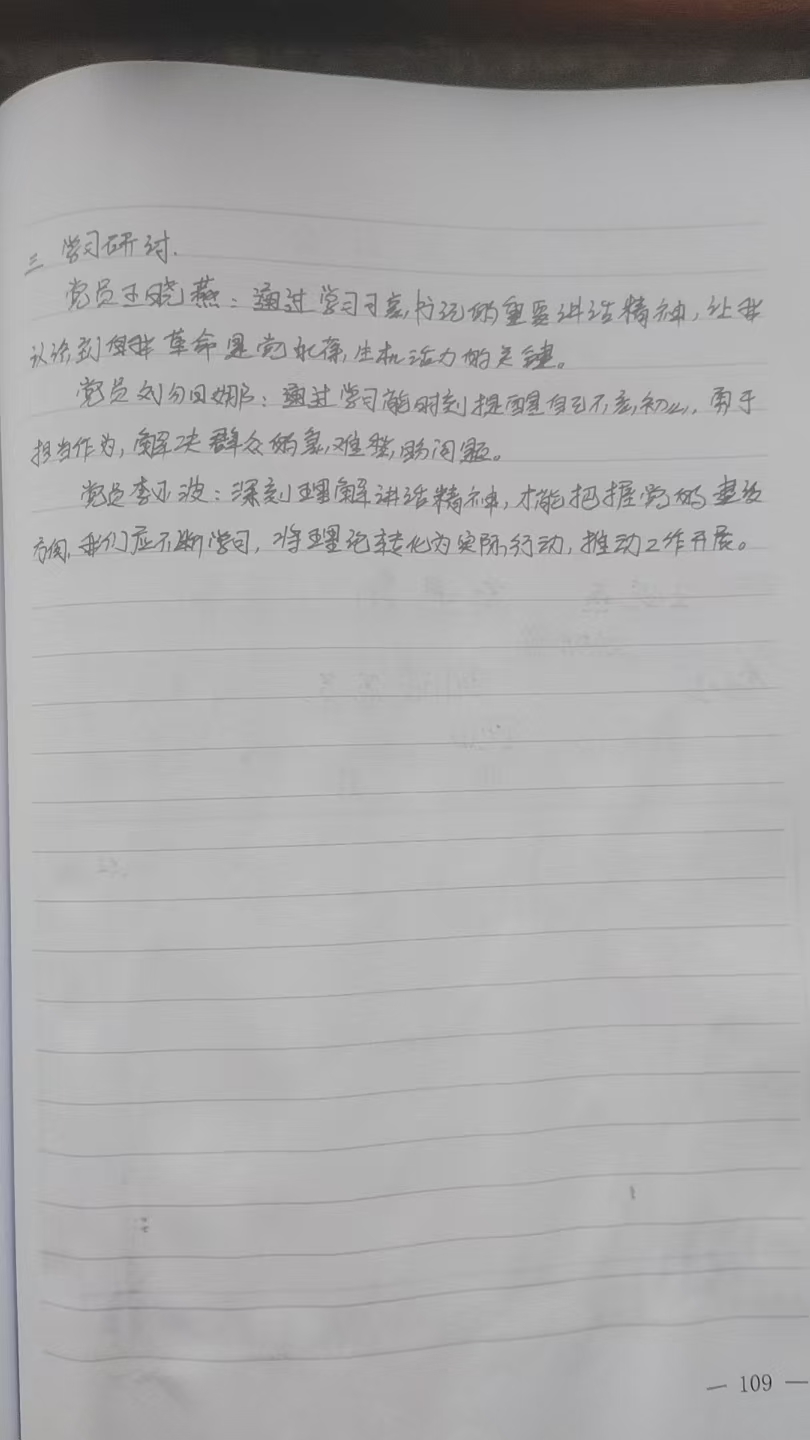 三 学习研讨.
党员王晓燕：通过学习习总书记的重要讲话精神，让我
认识到自我革命是党永葆生机活力的关键。
党员刘 娜：通过学习能时刻提醒自己不忘初心，勇于
担当作为，解决群众的急难愁盼问题。
党员李 波：深刻理解讲话精神，才能把握党的建设
方向，我们应不断学习，将理论转化为实际行动，推动工作开展。
— 109 —